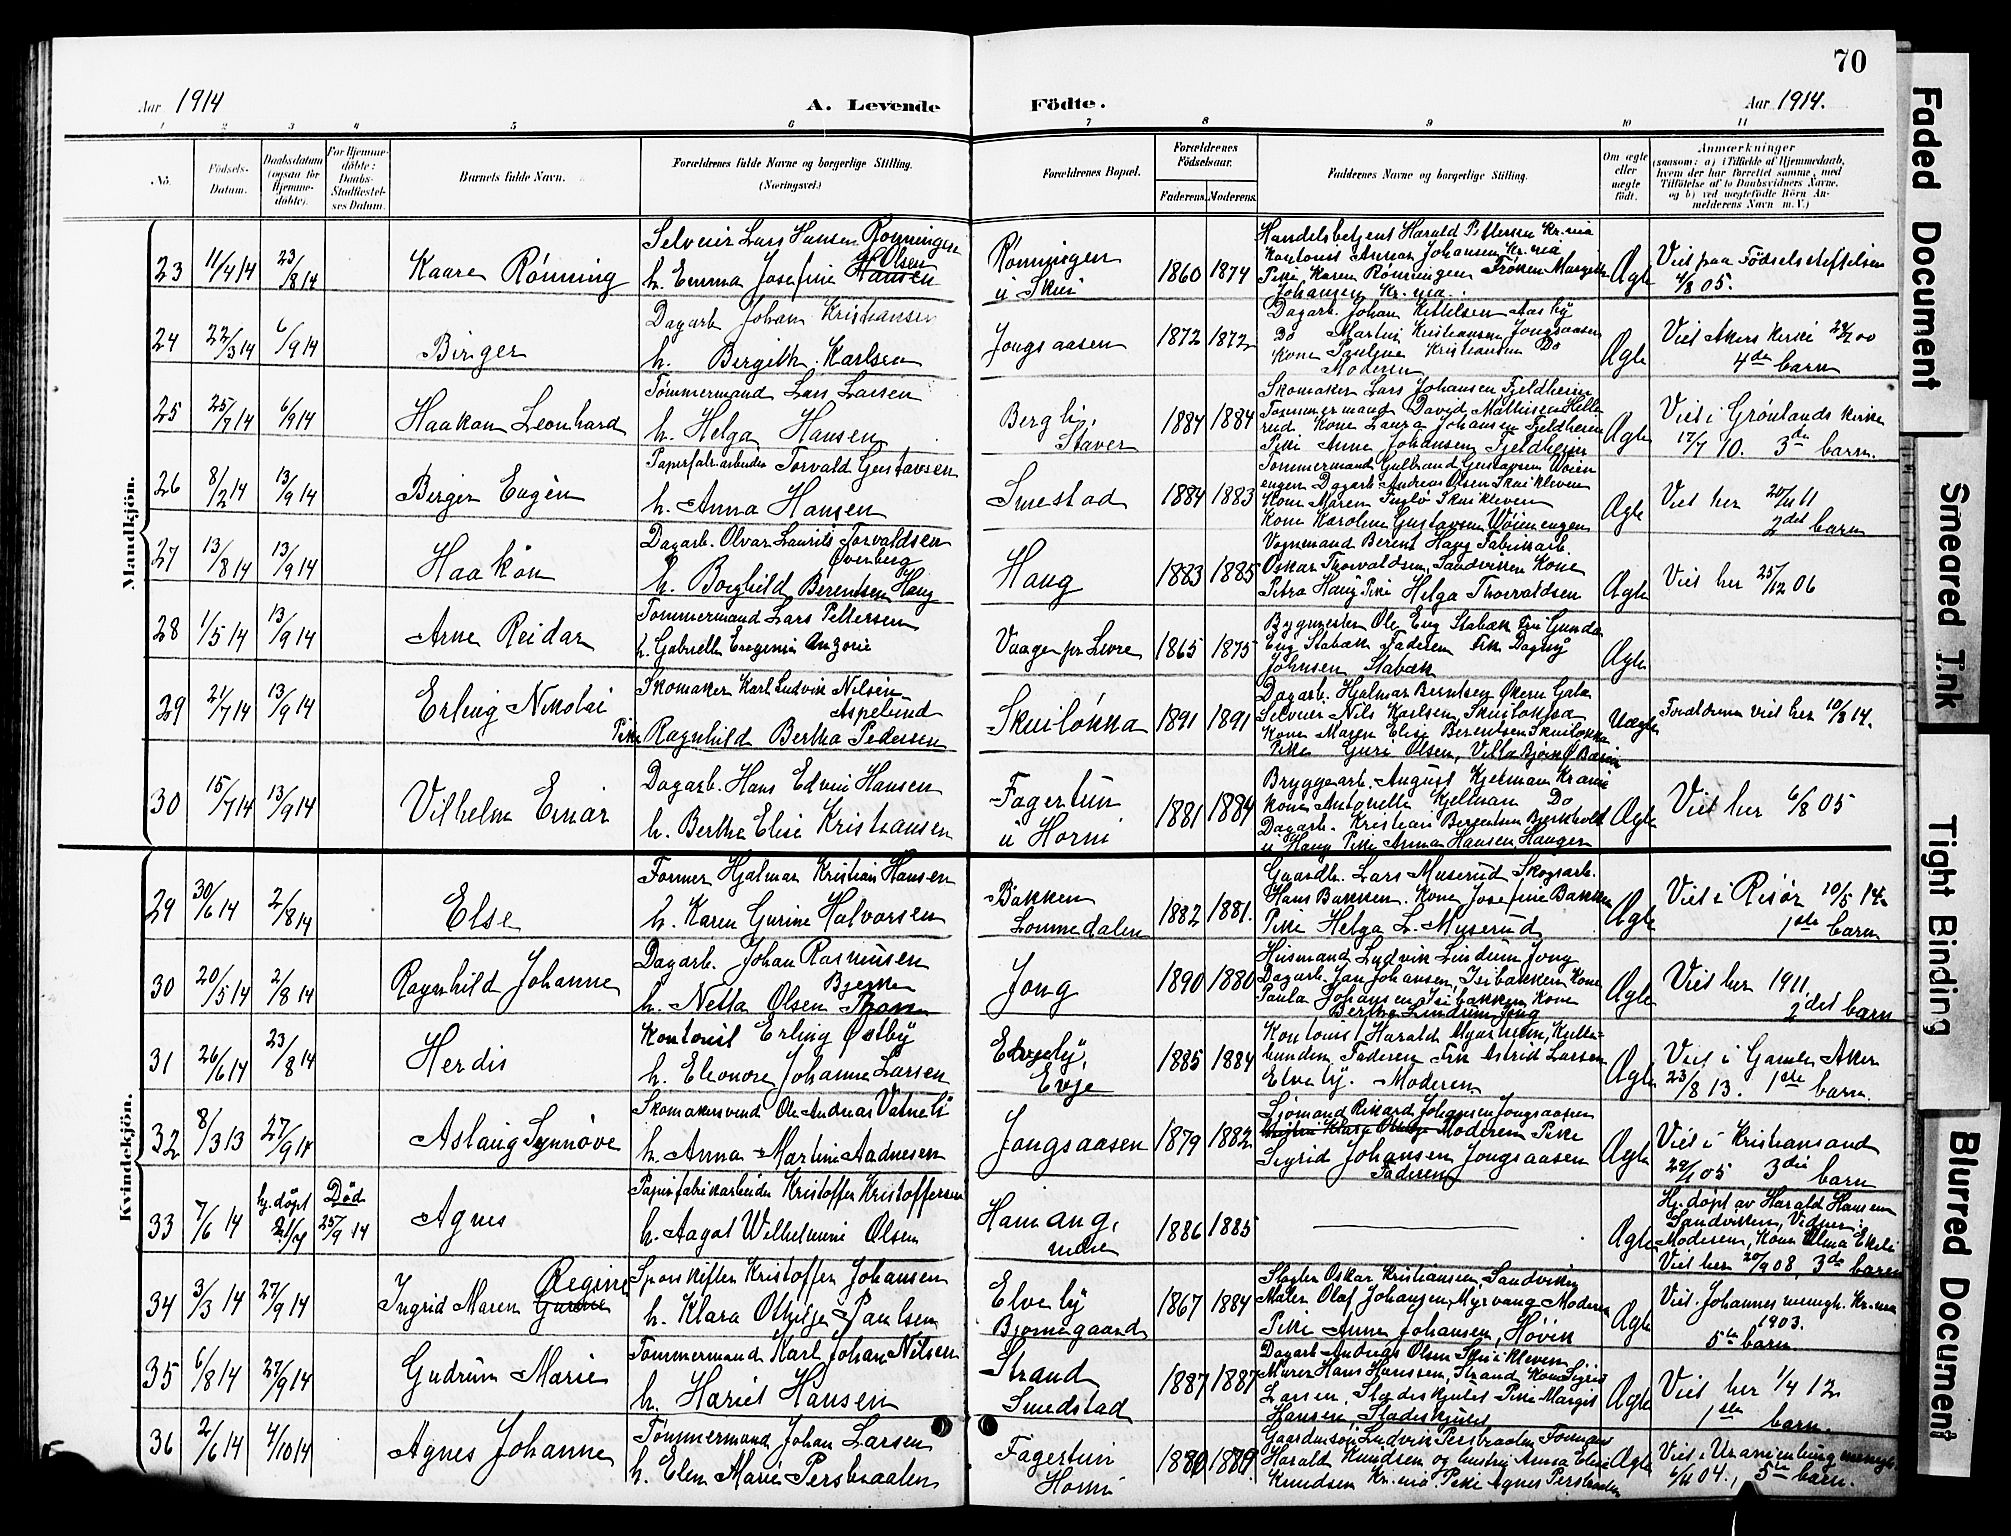 70
Aar 1914
A. Levende
Födte.
Aar 1914.
1 2 3 4 5 6 7 8 9 10 11
No.
Födsels-
Datum.
Daabsdatum
(ogsaa for
Hjemme-
döbte).
For Hjemme-
döbte:
Daabs-
Stadfæstel-
ses Datum.
Barnets fulde Navn.
Forældrenes fulde Navne og borgerlige Stilling.
(Næringsvei.)
Forældrenes Bopæl.
Forældrenes
Födselsaar.
Faderens. Moderens.
Faddernes Navne og borgerlige Stilling.
Om ægte
eller
uægte
födt.
Anmærkninger
(saasom: a) i Tilfælde af Hjemmedaab,
hvem der har forrettet samme, med
Tilföielse af to Daabsvidners Navne,
og b) ved uægtefödte Börn An-
melderens Navn m. V.)
Mandkjön.
23 11/4 14 23/8 14
Kaare Rönning
Selveier Lars Hansen Rönningen
Olsen
h. Emma Josefine Hansen
Rönningen
i Skui
1860 1874
Handelsbetjent Harald Pettersen Kr.nia
Kontorist Annar Johansen Kr.nia
Pike Karen Rönningen Fröken Margith
Johansen Kr.nia.
Ægte
Viet paa Födselsstiftelsen
4/8 05.
24 22/3 14 6/9 14
Birger
Dagarb. Johan Kristiansen
h. Bergithe Karlsen
Jongsaasen
1872 1872
Dagarb. Johan Kittilsen Aas by
Do Martin Kristiansen Jongsaasen
Kone Pauline Kristiansen Do
Moderen
Ægte
Viet Akers kirke 00
4de barn
25 25/7 14 6/9 14
Haakon Leonhard
Tömmermand Lars Larsen
h. Helga Hansen
Bergli,
Staver
1884 1884
Skomaker Lars Johansen Fjeldheim
Tömmermand David Mathisen Hille
rud. Kone Laura Johansen Fjeldheim
Pike Anne Johansen Fjeldheim
Ægte
Viet i Grönlands kirke
17/7 10. 3de barn.
26 8/2 14 13/9 14
Birger Eugèn
Papirfabr.arbeider Torvald Gustavsen
h. Anna Hansen
Smestad
1884 1883
Tömmermand Gulbrand Gustavsen Wöien
engen Dagarb. Andreas Olsen Skuikleven
Kone Maren Fuglö Skuikleven
Kone Karoline Gustavsen Wöienengen
Ægte
Viet her 11
2det barn
27 13/8 14 13/9 14
Haakon
Dagarb. Olvar Laurits Torvaldsen
Överberg
h. Borghild Berentsen Haug
Haug
1883 1885
Vognmand Berent Haug Fabrikarb.
Oskar Thorvaldsen, Sandviken Kone
Petra Haug Pike Helga Thorvaldsen
Ægte
Viet her 25/12 06
28 1/5 14 13/9 14
Arne Reidar
Tömmermand Lars Pettersen
h. Gabrielle Eugenie
Vaagen pr Levre
1865 1875
Bygmester Ole Eng Stabæk Fru Gunda
Eng Stabæk Faderen Frk Dagny
Johnsen Stabæk
Ægte
29 21/7 14 13/9 14
Erling Nikolai
Skomaker Karl Ludvik Nilsen
Aspelund
Pike Ragnhild Bertha Pedersen
Skuilökka
1891 1891
Dagarb. Hjalmar Berntsen Ökern
Selveier Nils Karlsen, Skuilökka
Kone Maren Elise Berentsen Skuilökka
Pike Guri Olsen, Villa
Uægte
Forældrene viet her 10/8 14.
30 15/7 14 13/9 14
Vilhelm Einar
Dagarb. Hans Edvin Hansen
h. Berthe Elise Kristiansen
Fagertun
i Horni
1881 1884
Bryggearb. August Kjelman Kr.ania
Kone Antonette Kjelman Do
Dagarb. Kristian Berentsen
i Haug Pike Anna Hansen Haugen
Ægte
Viet her 6/8 05
Kvindekjön.
29 30/6 14 2/8 14
Else
Former Hjalmar Kristian Hansen
h. Karen Gurine Halvorsen
Bakken
Lommedalen
1882 1881.
Gaardbr. Lars Muserud Skogsarb.
Hans Bakken. Kone Josefine Bakken
Pike Helga L. Muserud
Ægte
Viet i Risör 10/5 14
1ste barn
30 20/5 14 2/8 14
Ragnhild Johanne
Dagarb. Johan Rasmussen
Bjerke
h. Netta Olsen
Jong
1890 1880
Husmand Ludvik Lindrum Jong
Dagarb. Jan Johansen, Isibakken Kone
Paula Johansen Isibakken, Kone
Berthe Lindrum Jong
Ægte
Viet her 1911
2det barn
31 26/6 14 23/8 14
Herdis
Kontorist Erling Östby
h. Eleonore Johanne Larsen
Elvely,
Evje
1885 1884
Kontorist Harald
Faderen Frk Astrid Larsen
Elvely. Moderen
Ægte
Viet i Gamle Aker
23/8 13. 1ste barn.
32 8/3 13 27/9 14
Aslaug Synnöve
Skomakersvend Ole Andreas Vatneli
h. Anna Martine Aadnesen
Jongsaasen
1879 1882
Sjömand Rikard Johansen Jongsaasen
Moderen Pike
Sigrid Johansen Jongsaasen
Faderen
Ægte
Viet i Kristiansand
05 3die barn
33 7/6 14
hj. döpt
Död
25/9 14
Agnes
Papirfabrikarbeider Kristoffer Kristoffersen
h. Aagot Wilhelmine Olsen
Hamang,
indre
1886 1885
Ægte
Hj. döpt av Harald Hansen
Sandviken, Vidner:
Moderen, Kone Olma
Viet her 20/9 08. 3die barn
34 3/3 14 27/9 14
Regine
Ingrid Maren
Sporskifter Kristoffer Johansen
h. Klara Othilje Paulsen
Elvely
Bjørnegaard
1867 1884
Slagter Oskar Kristiansen, Sandviken
Maler Olaf Johansen, Myrvang Moderen
Pike Anna Johansen, Hövik
Ægte
Viet. Johannes menigh. Kr.nia
1903.
5te barn
35 6/8 14 27/9 14
Gudrun Marie
Tömmermand Karl Johan Nilsen
h. Hariet Hansen
Strand
Smedstad
1887 1887
Dagarb. Andreas Olsen Skuikleven
Murer Hans Hanssen, Strand Kone Sigrid
Larsen, Stadeskjulet Pike Margit
Hansen, Stadeskjulet
Ægte
Viet her 1/4 12
1ste barn.
36 2/6 14 4/10 14
Agnes Johanne
Tömmermand Johan Larsen
h. Elen Marie Persbraaten
Fagertun
Horni
1880 1879
Gaardmsön Ludvik Persbraaten Formand
Harald Knudsen og hustru Anna Elise
Knudsen Kr.nia. Pike Agnes Persbraaten
Ægte
Viet i Uranienborg menigh.
04., 5te barn.
Faded Document
Smeared Ink
Tight Binding
Blurred Document